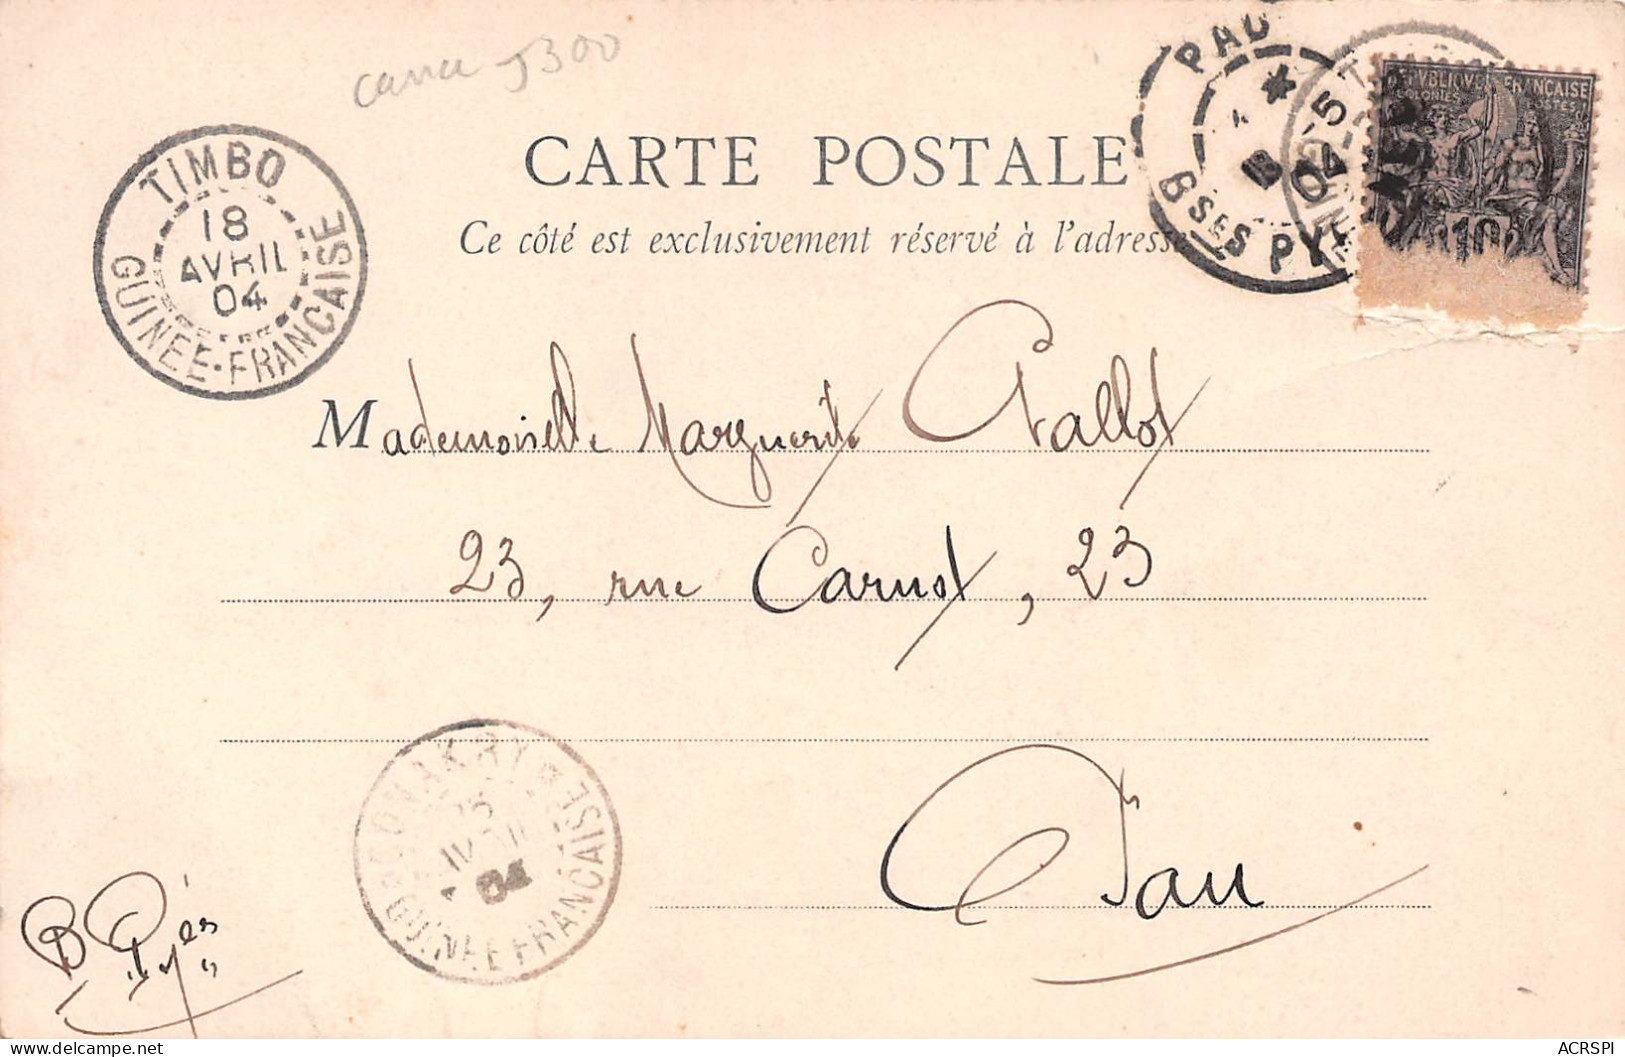 carrie 5300
CARTE POSTALE
Ce côté est exclusivement réservé à l'adresse
TIMBO
18
AVRIL
04
GUINÉE-FRANÇAISE
PAU
18
04
BSES PYR
RÉPUBLIQUE FRANÇAISE
COLONIES POSTES
10
Mademoiselle Marguerite Vallot
23, rue Carnot, 23
CONAKRY
AVRIL
04
GUINÉE FRANÇAISE
Pau
B Pyrées
ACRSPI